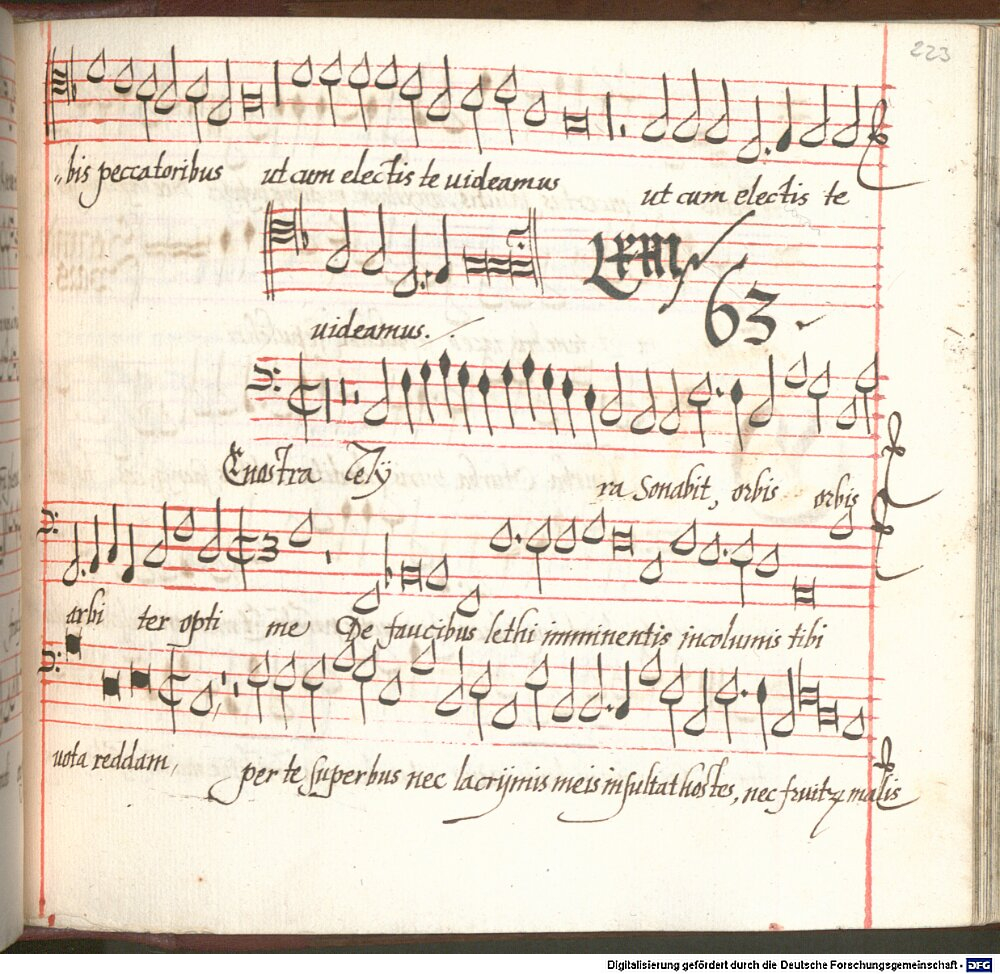 223
bis peccatoribus ut cum electis te uideamus ut cum electis te
LXIII
63
uideamus.
nostra ra sonabit, orbis orbis
arbi ter opti me De faucibus lethi imminentis incolumis tibi
uota reddam, per te superbus nec lacrijmis meis insultat hostes, nec fruitz malis
Digitalisierung gefördert durch die Deutsche Forschungsgemeinschaft - DFG